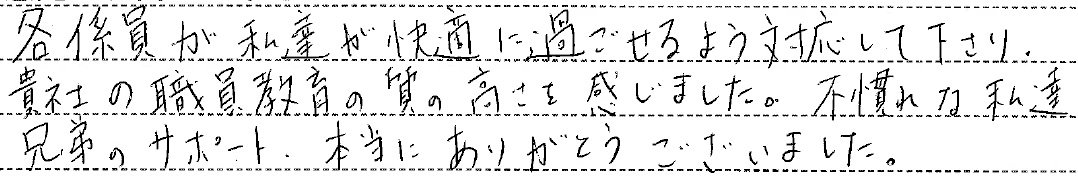 各係員が私達が快適に過ごせるよう対応して下さり、
貴社の職員教育の質の高さを感じました。不慣れな私達
兄弟のサポート、本当にありがとうございました。